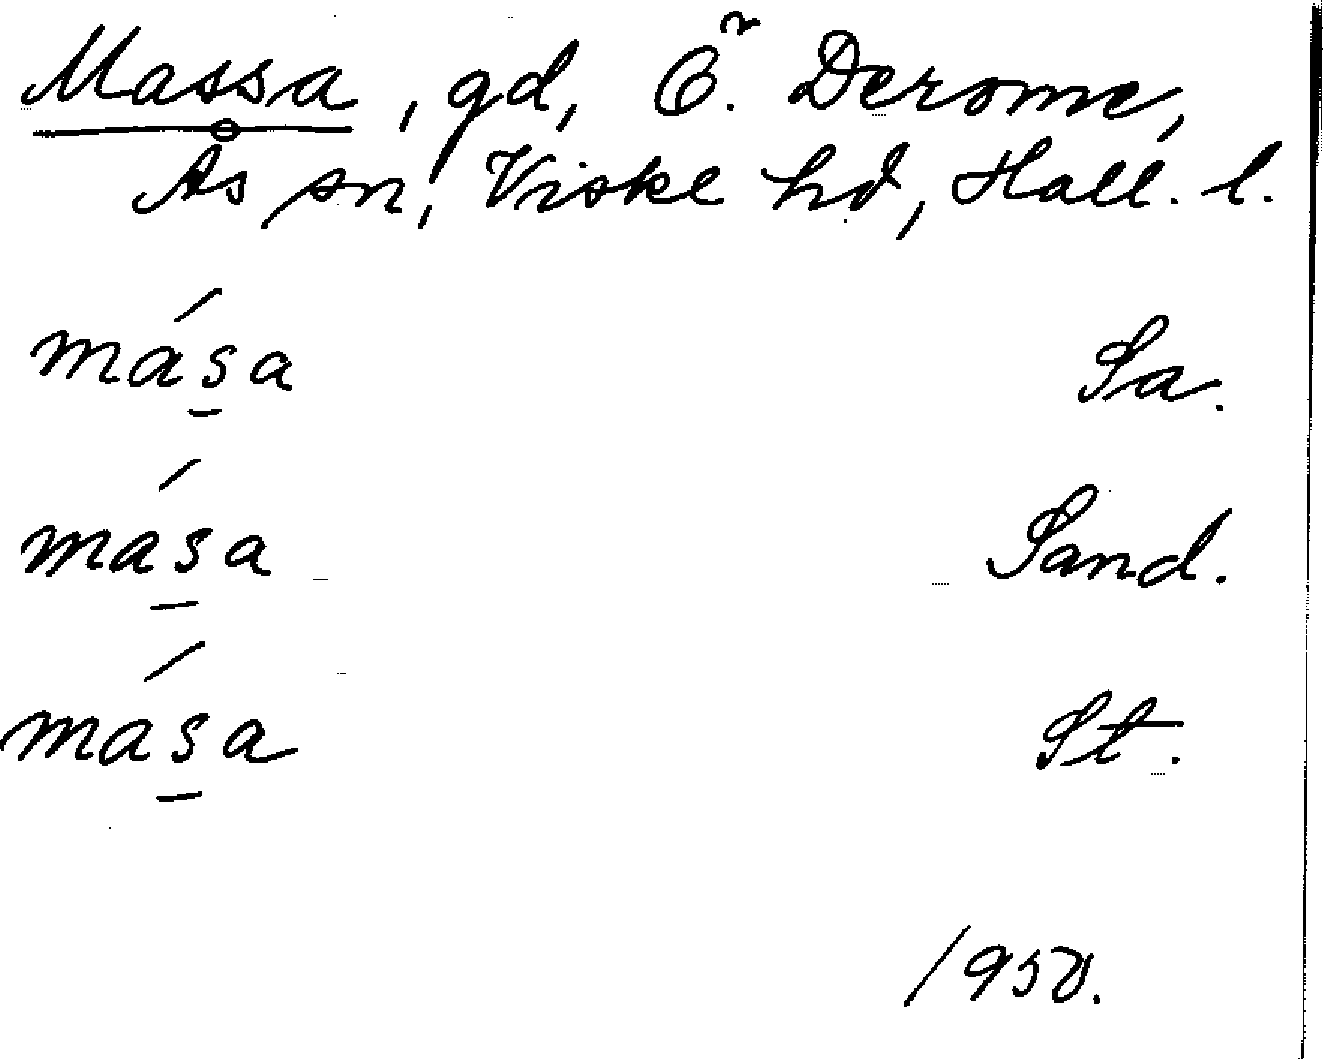 Massa, gd, Ö. Derome,
Ås sn, Viske hd, Hall. l.
má̱sa Sa.
mása̱ Sand.
mása̱ St.
1950.